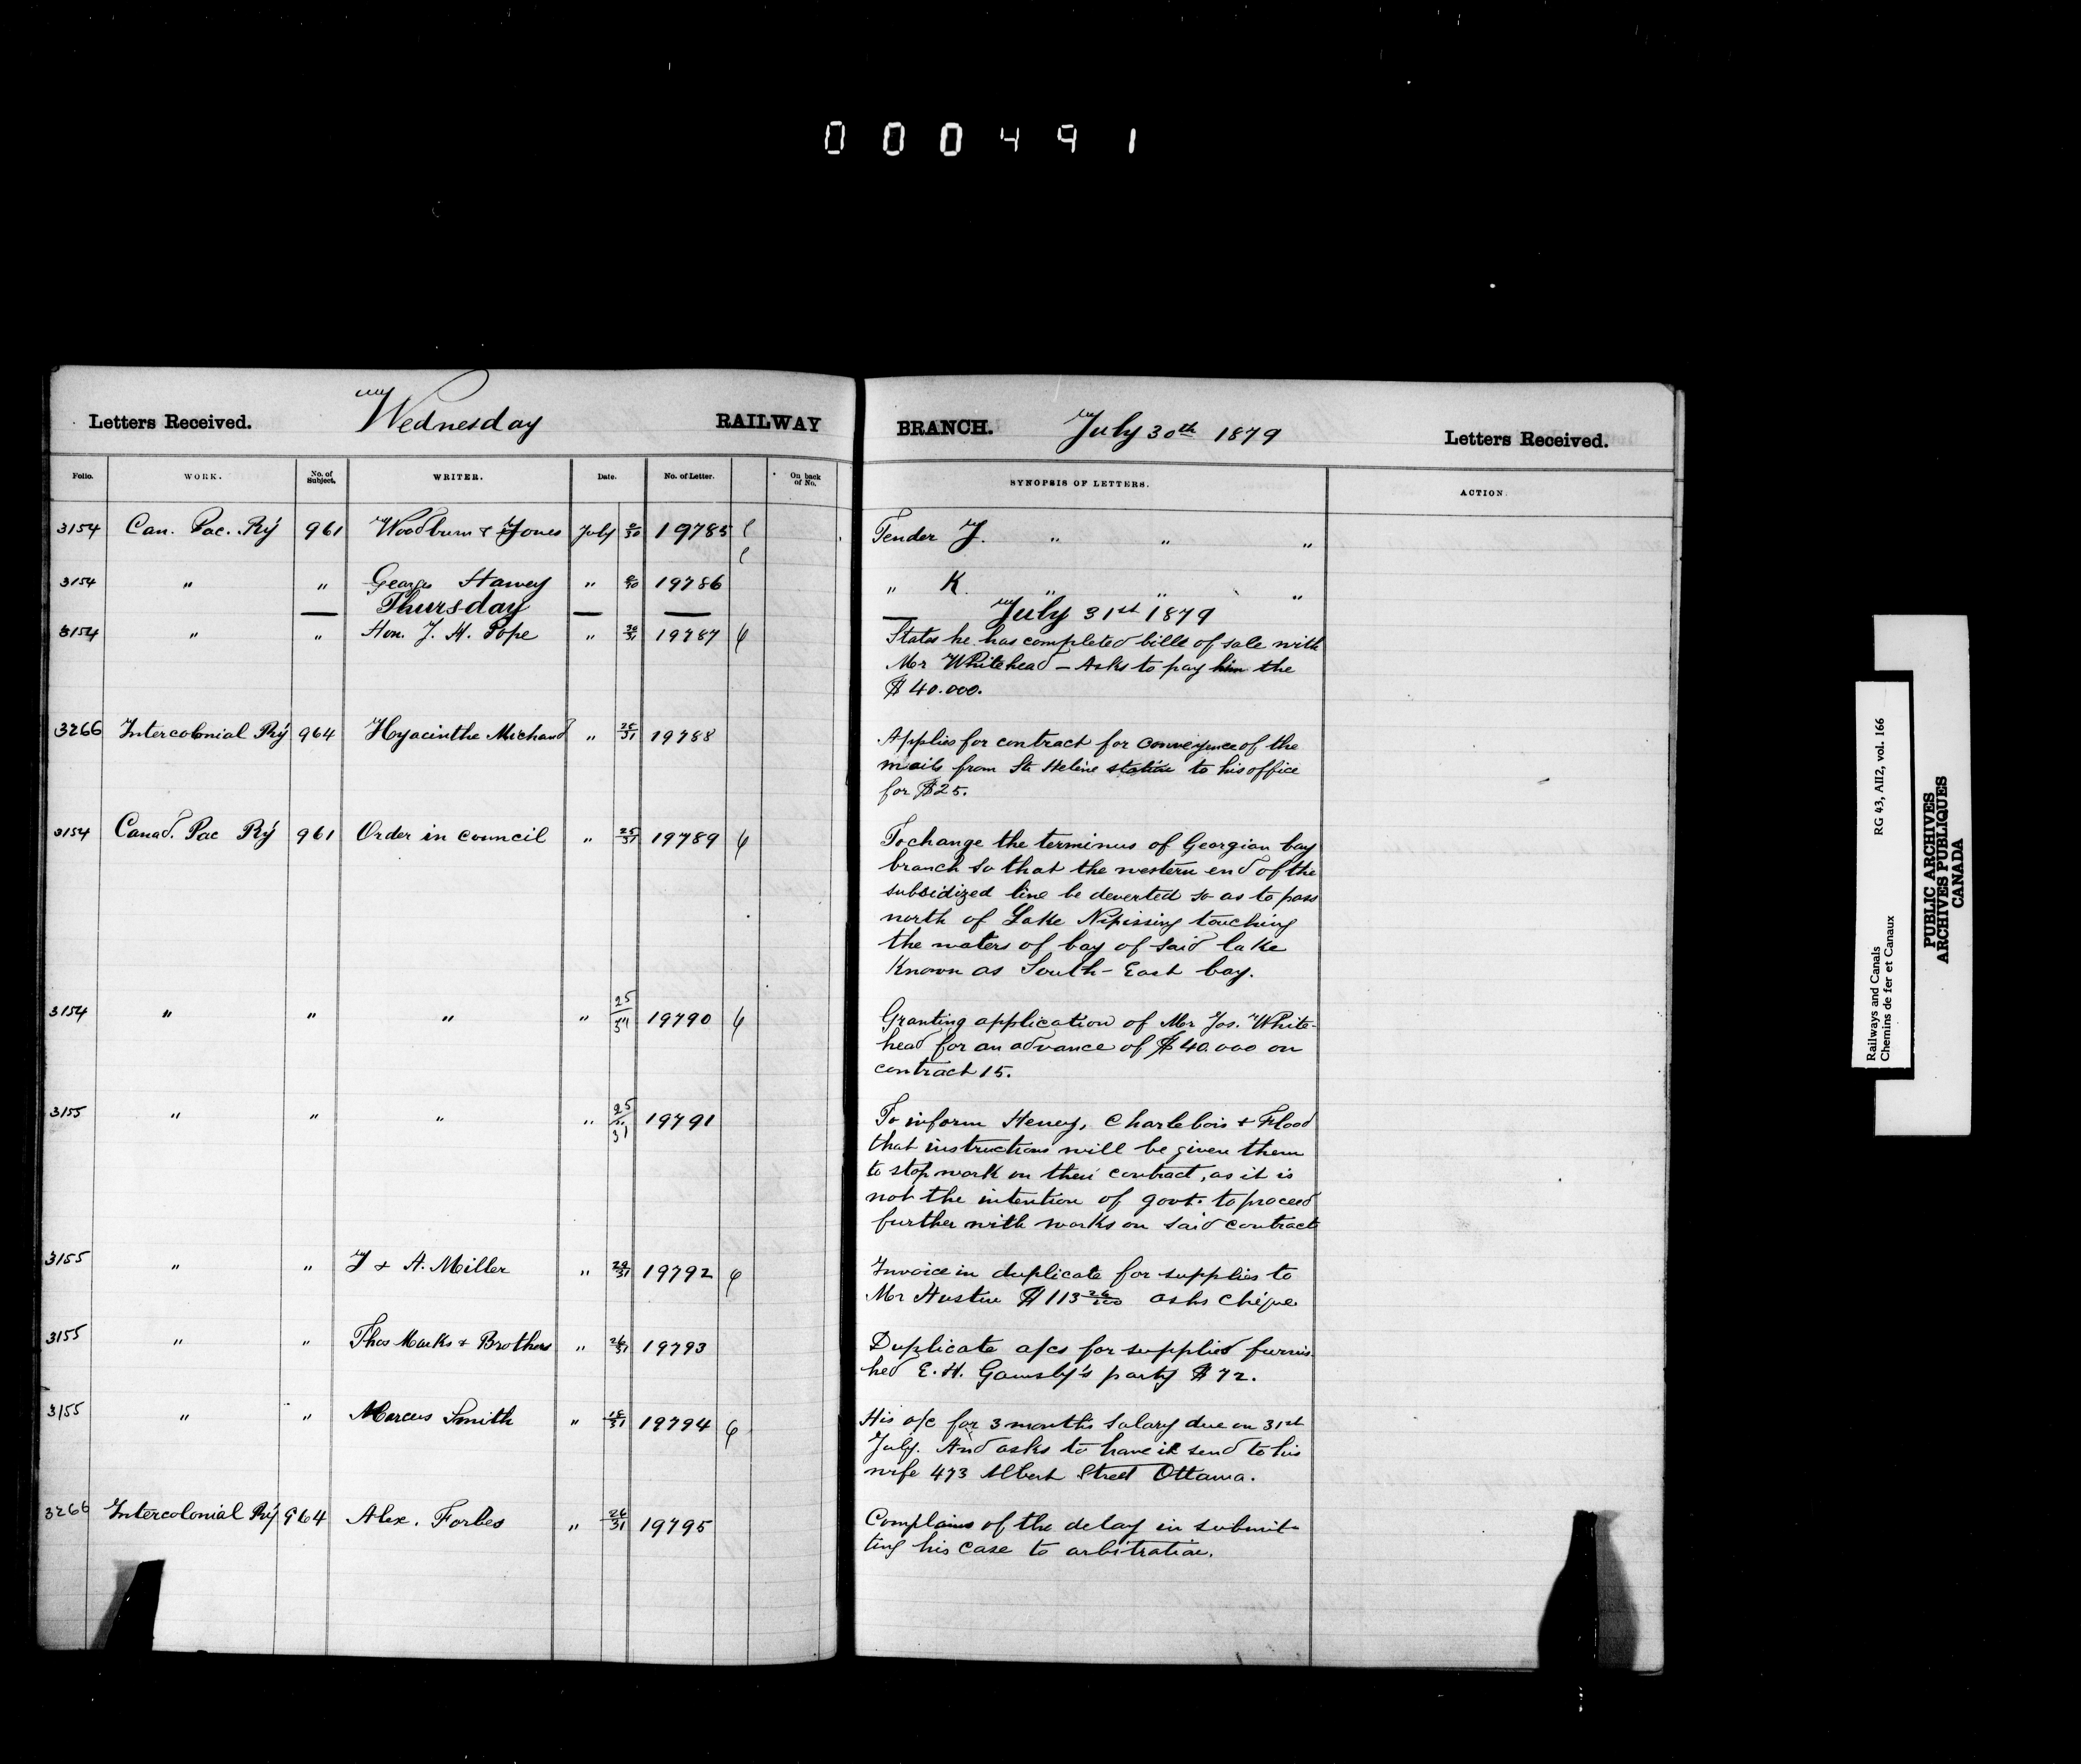 000491
Letters Received. Wednesday RAILWAY BRANCH. July 30th 1879 Letters Received.
Folio. WORK. No. of Subject. WRITER. Date. No. of Letter. On back of No. SYNOPSIS OF LETTERS. ACTION.
3154 Can. Pac. Ry 961 Woodburn & Jones July 30 19785 Tender J. " " "
3154 " " George " 30 19786 " K. " " "
Thursday July 31st 1879
3154 " " Hon. J. H. Pope " 30/31 19787 States he has completed bills of sale with
Mr Whitehead – Asks to pay him the
$40.000.
3266 Intercolonial Ry 964 Hyacinthe Michaud " 31 19788 Applies for contract for conveyence of the
mails from Ste Helène station to his office
for $25.
3154 Canad. Pac Ry 961 Order in council " 25/31 19789 To change the terminus of Georgian bay
branch so that the western end of the
subsidized line be deverted so as to pass
north of Lake Nipissing touching
the waters of bay of said lake
Known as South-East bay.
3154 " " " " 25/31 19790 Granting application of Mr Jos. White-
head for an advance of $40.000 on
contract 15.
3155 " " " " 25/31 19791 To inform Heney, Charlebois & Flood
that instructions will be given them
to stop work on their contract, as it is
not the intention of govt. to proceed
further with works on said contract
3155 " " J & A. Miller " 29/31 19792 Invoice in duplicate for supplies to
Mr Austin $113 26/100 asks chéque
3155 " " Thos Marks & Brothers " 26/31 19793 Duplicate a/cs for supplied furnis-
hed E. H. Gamsby's party $72.
3155 " " Marcus Smith " 18/31 19794 His a/c for 3 months salary due on 31st
July. And asks to have it send to his
wife 473 Albert Street Ottawa.
3266 Intercolonial Ry 964 Alex. Forbes " 26/31 19795 Complains of the delay in submit-
ting his case to arbitration.
Railways and Canals RG 43, AII2, vol. 166
Chemins de fer et Canaux
PUBLIC ARCHIVES
ARCHIVES PUBLIQUES
CANADA